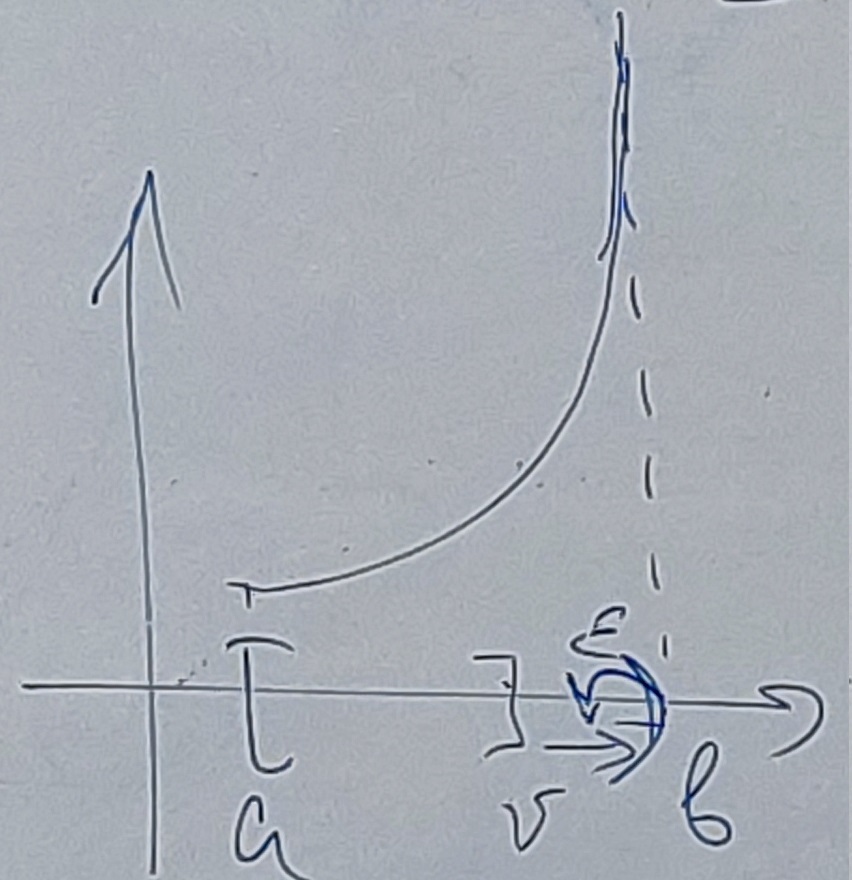 ε
a [ ] v → ) b